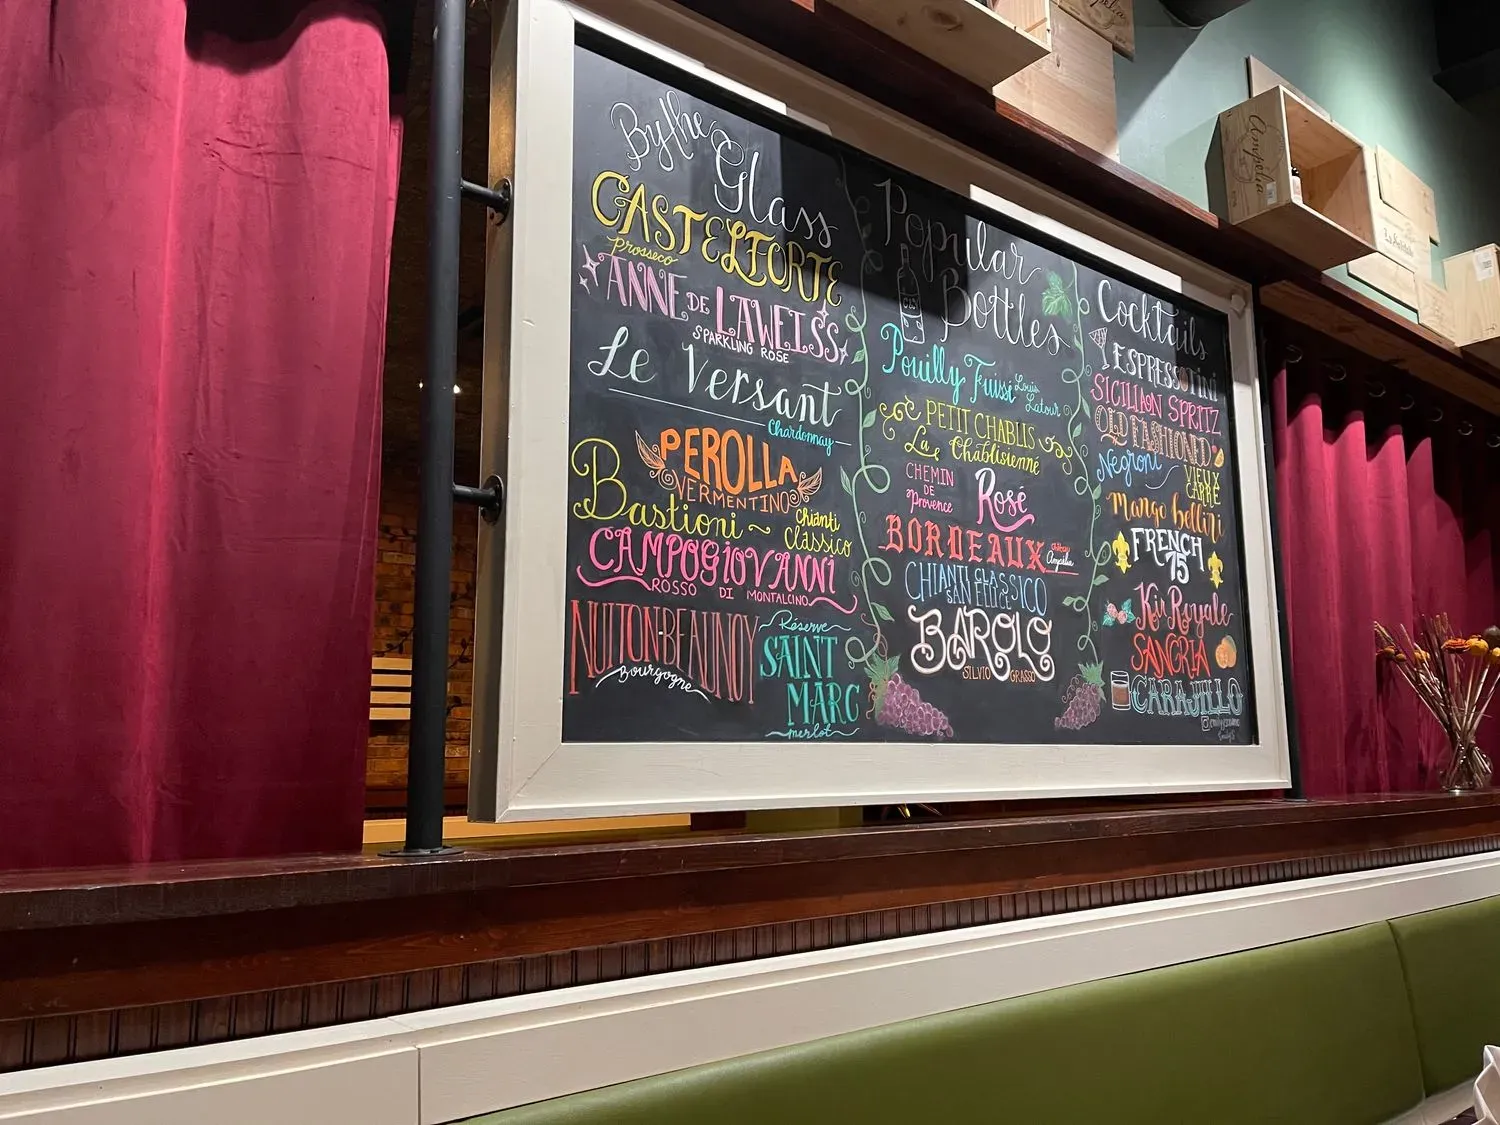 By the
Glass
CASTELFORTE
Prosseco
ANNE DE LAWEISS
SPARKLING ROSE
Le Versant
Chardonnay
PEROLLA
VERMENTINO
Bastioni ~ Chianti
Classico
CAMPOGIOVANNI
ROSSO DI MONTALCINO
NUITON-BEAUNOY
Bourgogne
Réserve
SAINT
MARC
merlot
Popular
Bottles
Pouilly Fuissé Louis
Latour
PETIT CHABLIS
La Chablisienne
CHEMIN
DE
Provence
Rosé
BORDEAUX
CHIANTI CLASSICO
SAN FELICE
BAROLO
SILVIO GRASSO
Cocktails
ESPRESSOTINI
SICILIAN SPRITZ
OLD FASHIONED
Negroni
VIEUX
CARRE
Mango bellini
FRENCH
75
Kir Royale
SANGRIA
CARAJILLO
Ampelia